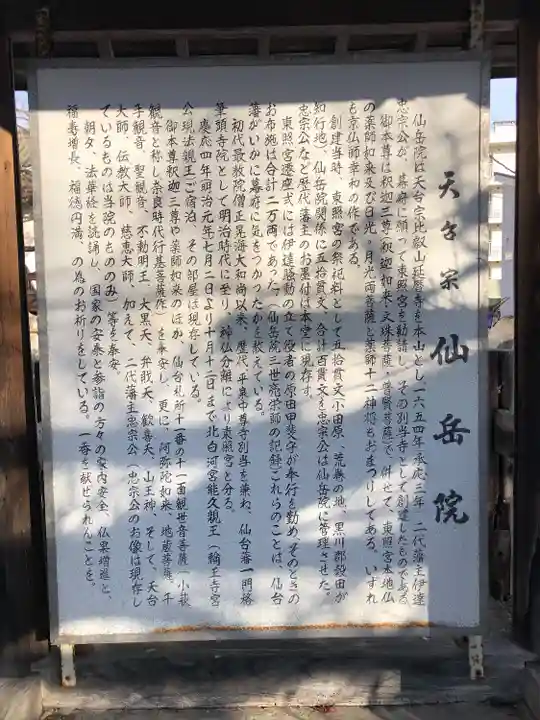 天台宗 仙岳院
仙岳院は天台宗比叡山延暦寺を本山とし一六五四年承応三年、二代藩主伊達
忠宗公が、幕府に願って東照宮を勧請し、その別当寺として創建したものである。
御本尊は釈迦三尊(釈迦如来、文珠菩薩、普賢菩薩)で、併せて、東照宮本地仏
の薬師如来及び日光、月光両菩薩と薬師十二神将もおまつりしてある。いずれ
も京仏師幸和の作である。
創建当時、東照宮の祭祀料として五拾貫文(小田原、荒巻の地、黒川郡殺田が
知行地)、仙岳院関係に五拾貫文、合計百貫文を忠宗公は仙岳院に管理させた。
忠宗公など歴代藩主のお墨付は本堂に現存す。
東照宮遷座式には伊達騒動の立て役者の原田甲斐守が奉行を勤め、そのときの
お布施は合計二万両であった。(仙岳院三世亮栄師の記録)これらのことは、仙台
藩がいかに幕府に気をつかったかを教えている。
初代最教院僧正晃海大和尚以来、歴代、平泉中尊寺別当を兼ね、仙台藩一門格
筆頭寺院として明治時代に至り、神仏分離により東照宮と分る。
慶応四年(明治元年)七月二日より十月十二日まで北白河宮能久親王(輪王寺宮
公現法親王)ご宿泊、その部屋は現存している。
御本尊釈迦三尊や薬師如来のほか、仙台札所十一番の十一面観世音菩薩(小萩
観音と称し奈良時代行基菩薩作)を奉安し、更に、阿弥陀如来、地蔵菩薩、千
手観音、聖観音、不動明王、大黒天、弁戝天、歓喜天、山王神、そして、天台
大師、伝教大師、慈恵大師、加えて、二代藩主忠宗公(忠宗公のお像は現存し
ているものは当院のもののみ)等を奉安。
朝夕、法華経を読誦し、国家の安泰と参詣の方々の家内安全、仏果増進と、
福寿増長、福徳円満、の為のお祈りをしている。一香を献ぜられんことを。